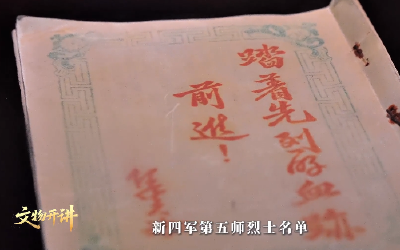 踏着先烈的血跡
前進！
文物开讲
新四军第五师烈士名单